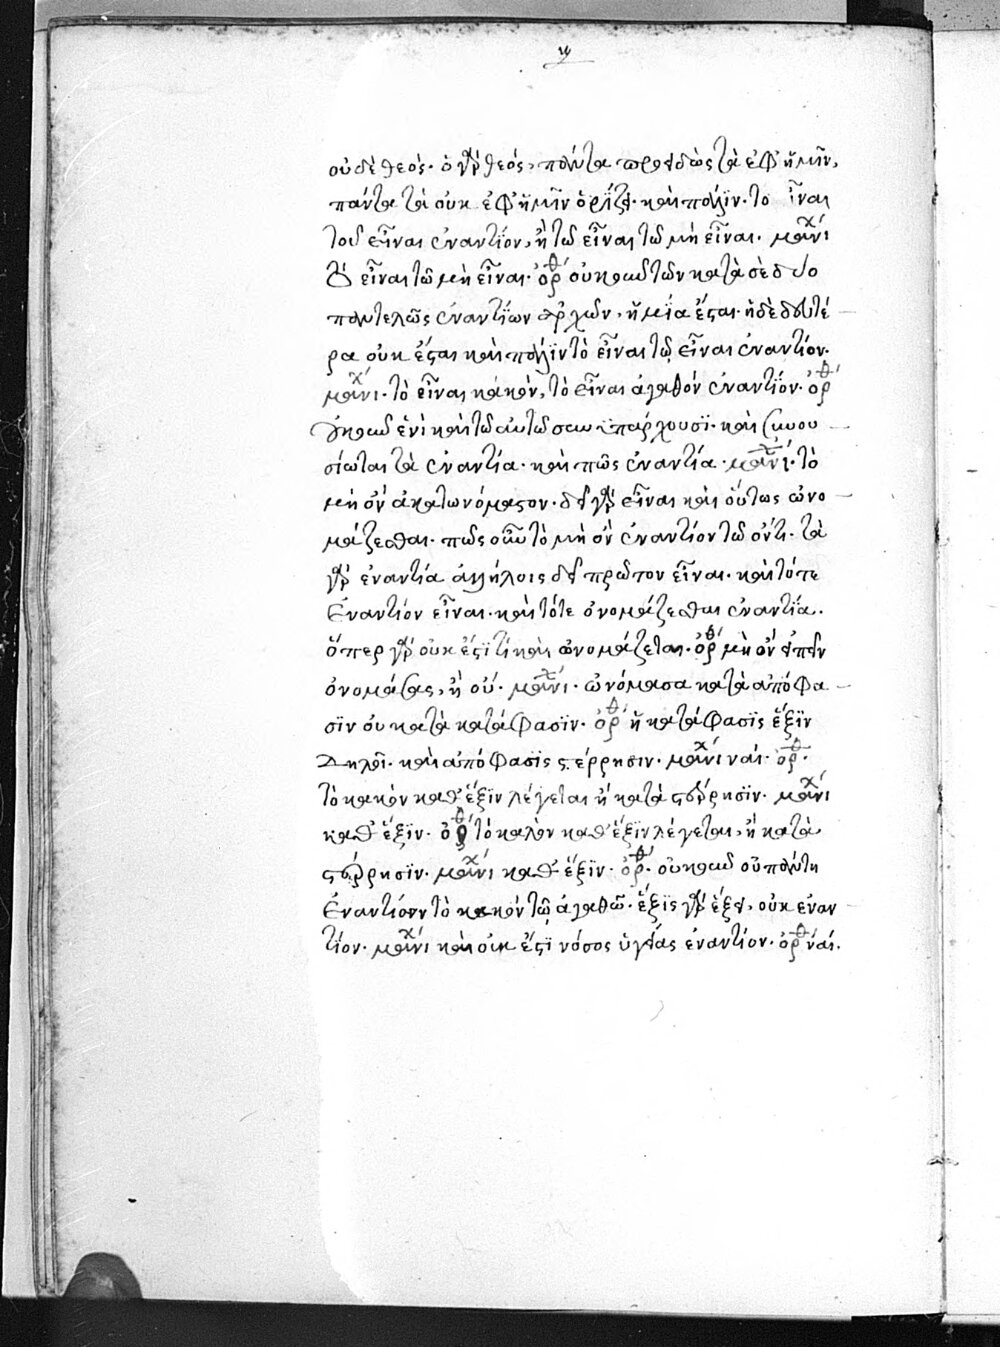 οὐδὲ θεός. ὁ γὰρ θεός, πάντα προειδὼς τὰ ἐφ' ἡμῖν,
πάντα τὰ οὐκ ἐφ' ἡμῖν ὁρίζει. καὶ πάλιν. τὸ εἶναι
τοῦ εἶναι ἐναντίον, ἢ τῶ εἶναι τῶ μὴ εἶναι. μανι
τὸ εἶναι τῶ μὴ εἶναι. ὀρθ οὐκοῦν τῶν κατὰ σὲ δύο
παντελῶς ἐναντίων ἀρχῶν, ἡ μία ἔσται. ἡ δὲ δευτέ
ρα οὐκ ἔσται καὶ πάλιν τὸ εἶναι τῶ εἶναι ἐναντίον.
μανι. τὸ εἶναι κακὸν, τὸ εἶναι ἀγαθὸν ἐναντίον. ὀρθ
οὐκοῦν ἑνὶ καὶ τῶ αὐτῶ συνυπάρχουσι. καὶ συνου
σίωται τὰ ἐναντία. καὶ πῶς ἐναντία. μανι. τὸ
μὴ ὂν ἀκατωνόμαστον. δεῖ γὰρ εἶναι καὶ οὕτως ὠνο
μάζεσθαι. πῶς οὖν τὸ μὴ ὂν ἐναντίον τῶ ὄντι. τὰ
γὰρ ἐναντία ἀλλήλοις δεῖ πρῶτον εἶναι. καὶ τότε
ἐναντίον εἶναι. καὶ τότε ὀνομάζεσθαι ἐναντία.
ὅπερ γὰρ οὐκ ἔστι τί καὶ ὠνομάζεται. ὀρθ μὴ ὂν εἰπεῖν
ὀνομάσας, ἢ οὔ. μανι. ὠνόμασα κατὰ ἀπόφα
σιν οὐ κατὰ κατάφασιν. ὀρθ ἡ κατάφασις ἕξιν
δηλοῖ. καὶ ἀπόφασις στέρρησιν. μανι ναί. ὀρθ.
τὸ κακὸν καθ' ἕξιν λέγεται ἢ κατὰ στέρρησιν. μανι
καθ' ἕξιν. ὀρθ τὸ καλὸν καθ' ἕξιν λέγεται, ἢ κατὰ
στέρρησιν. μανι καθ' ἕξιν. ὀρθ. οὐκοῦν οὐ πάντη
ἐναντίον τὸ κακὸν τῶ ἀγαθῶ. ἕξις γὰρ ἕξει, οὐκ ἐναν
τίον. μανι καὶ οὐκ ἔστι νόσος ὑγείας ἐναντίον. ὀρθ ναί.